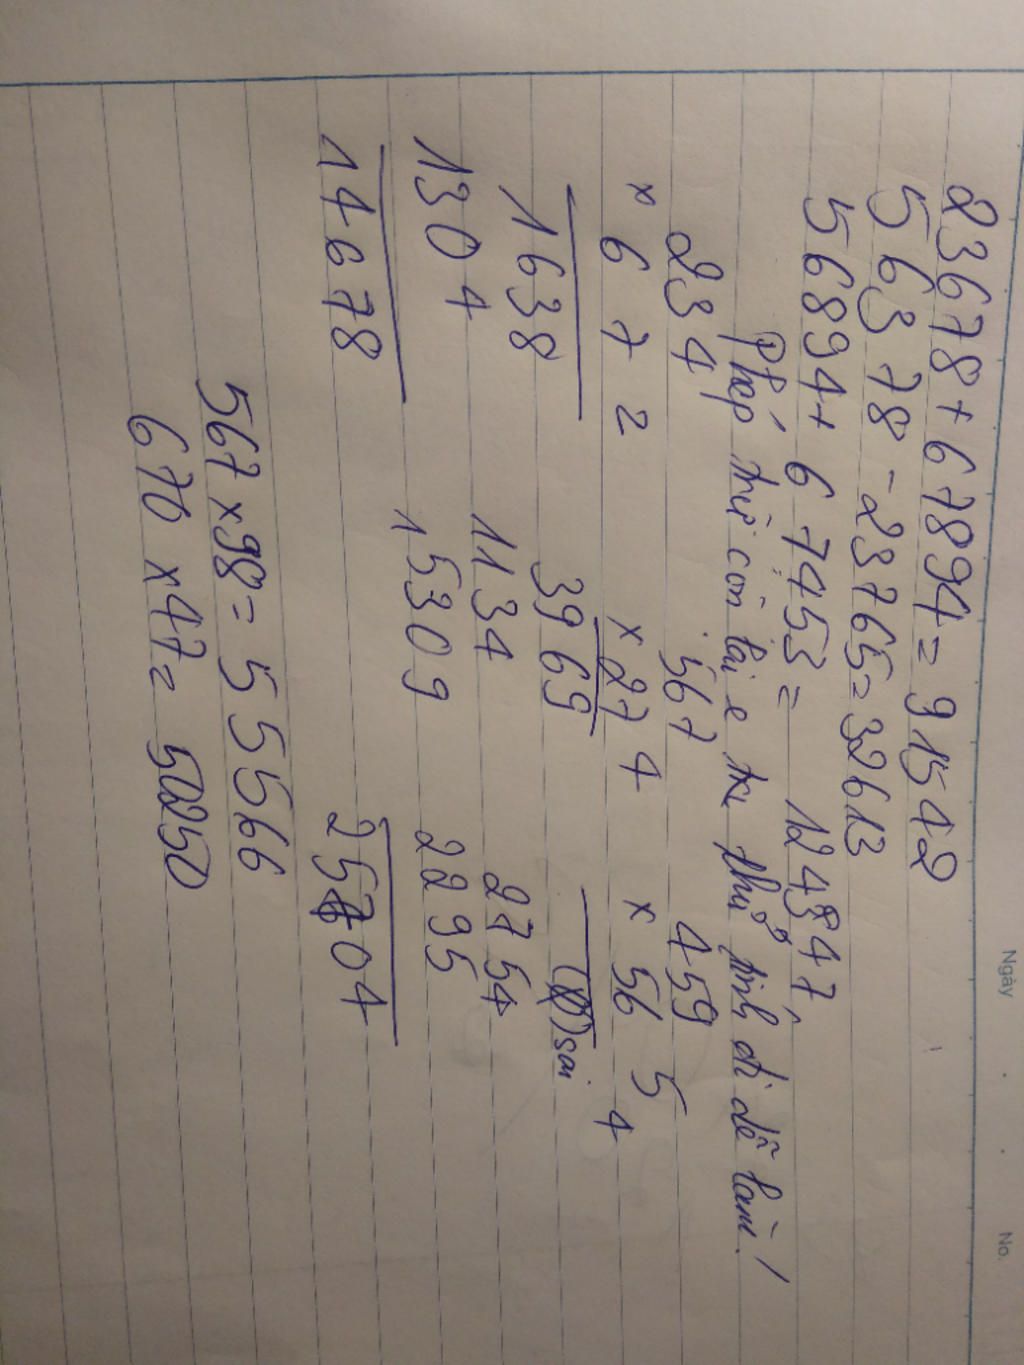 Ngày
No.
23678 + 67894 = 91542
56378 - 23765 = 32613
56894 + 67453 = 124347
phép trừ còn lại e tự thử tính đi dễ lắm!
234 567 459
x 67 2 x 27 4 x 56 5
4
1638 3969 sai
1304 1134 2754
14678 15309 2295
25704
567 x 98 = 55566
670 x 47 = 50250